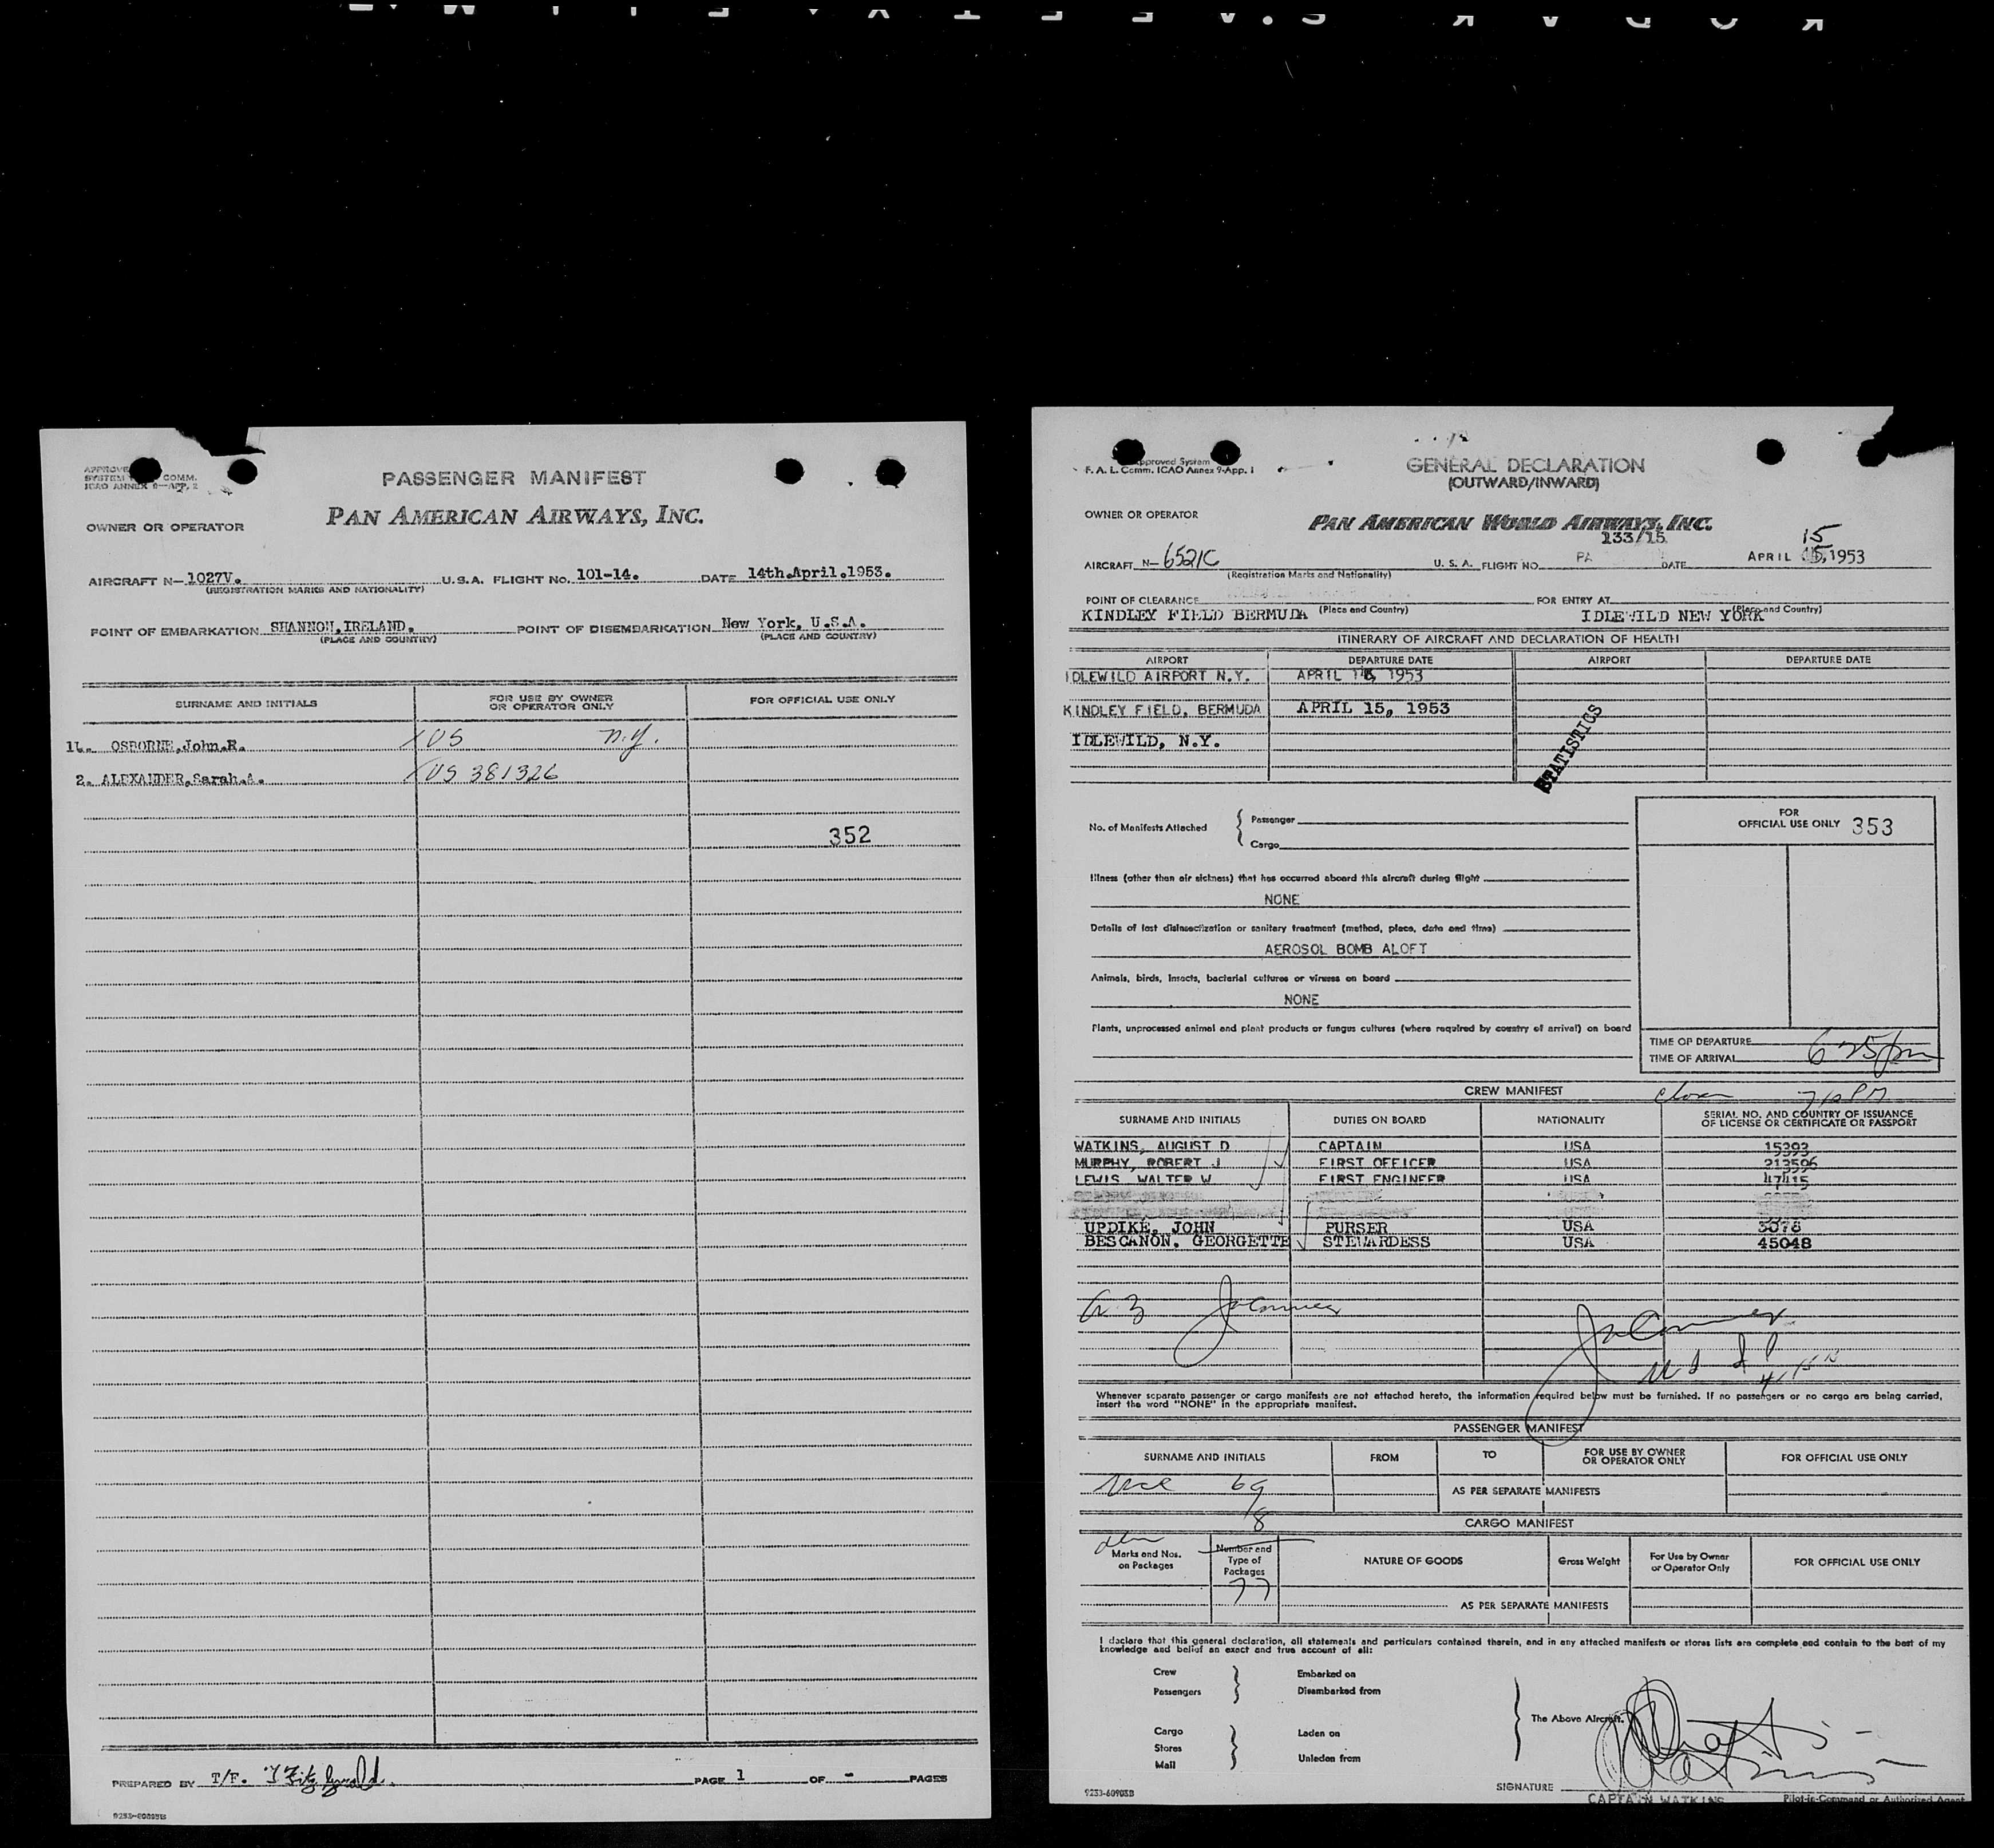 APPROVE
SYSTEM COMM.
ICAO ANNEX 9—APP. 2
PASSENGER MANIFEST
OWNER OR OPERATOR
PAN AMERICAN AIRWAYS, INC.
AIRCRAFT N— 1027V. U.S.A. FLIGHT NO. 101-14. DATE 14th.April.1953.
(REGISTRATION MARKS AND NATIONALITY)
POINT OF EMBARKATION SHANNON, IRELAND. POINT OF DISEMBARKATION New York, U.S.A.
(PLACE AND COUNTRY) (PLACE AND COUNTRY)
SURNAME AND INITIALS FOR USE BY OWNER OR OPERATOR ONLY FOR OFFICIAL USE ONLY
1. OSBORNE, John.R. US N.Y.
2. ALEXANDER, Sarah.A. US 381326
352
PREPARED BY T/F. T Fitzgerald. PAGE 1 OF - PAGES
Approved System
F. A. L. Comm. ICAO Annex 9-App. 1
GENERAL DECLARATION
(OUTWARD/INWARD)
OWNER OR OPERATOR
PAN AMERICAN WORLD AIRWAYS, INC.
133/15 15
AIRCRAFT N— 6521C U. S. A. FLIGHT NO. PA DATE APRIL 15, 1953
(Registration Marks and Nationality)
POINT OF CLEARANCE FOR ENTRY AT
KINDLEY FIELD BERMUDA (Place and Country) IDLEWILD NEW YORK (Place and Country)
ITINERARY OF AIRCRAFT AND DECLARATION OF HEALTH
AIRPORT DEPARTURE DATE AIRPORT DEPARTURE DATE
IDLEWILD AIRPORT N.Y. APRIL 1953
KINDLEY FIELD, BERMUDA APRIL 15, 1953
IDLEWILD, N.Y.
STATISTICS
No. of Manifests Attached { Passenger
Cargo
FOR
OFFICIAL USE ONLY 353
Illness (other than air sickness) that has occurred aboard this aircraft during flight
NONE
Details of last disinsectization or sanitary treatment (method, place, date and time)
AEROSOL BOMB ALOFT
Animals, birds, insects, bacterial cultures or viruses on board
NONE
Plants, unprocessed animal and plant products or fungus cultures (where required by country of arrival) on board
TIME OF DEPARTURE
TIME OF ARRIVAL 6 25 pm
CREW MANIFEST
SURNAME AND INITIALS DUTIES ON BOARD NATIONALITY SERIAL NO. AND COUNTRY OF ISSUANCE OF LICENSE OR CERTIFICATE OR PASSPORT
WATKINS, AUGUST D CAPTAIN USA 15393
MURPHY, ROBERT J FIRST OFFICER USA 213596
LEWIS WALTER W FIRST ENGINEER USA 47415
UPDIKE, JOHN PURSER USA 3078
BESCANON, GEORGETTE STEWARDESS USA 45048
Whenever separate passenger or cargo manifests are not attached hereto, the information required below must be furnished. If no passengers or no cargo are being carried,
insert the word "NONE" in the appropriate manifest.
PASSENGER MANIFEST
SURNAME AND INITIALS FROM TO FOR USE BY OWNER OR OPERATOR ONLY FOR OFFICIAL USE ONLY
69
AS PER SEPARATE MANIFESTS
8
CARGO MANIFEST
Marks and Nos. on Packages Number and Type of Packages NATURE OF GOODS Gross Weight For Use by Owner or Operator Only FOR OFFICIAL USE ONLY
77
AS PER SEPARATE MANIFESTS
I declare that this general declaration, all statements and particulars contained therein, and in any attached manifests or stores lists are complete and contain to the best of my
knowledge and belief an exact and true account of all:
Crew Embarked on
Passengers Disembarked from
The Above Aircraft.
Cargo Laden on
Stores
Mail Unladen from
SIGNATURE
CAPTAIN WATKINS Pilot-in-Command or Authorized Agent
9233-60903B